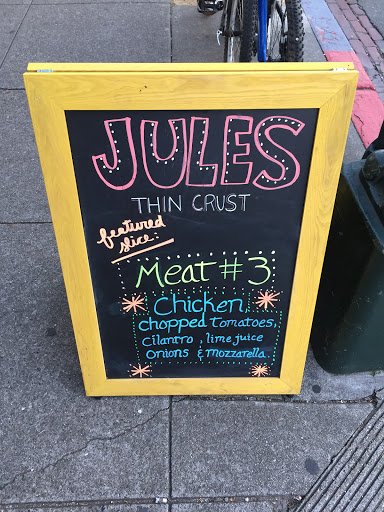 JULES
THIN CRUST
featured
slice.
Meat #3
Chicken,
chopped Tomatoes,
cilantro, lime juice
onions & mozzarella.